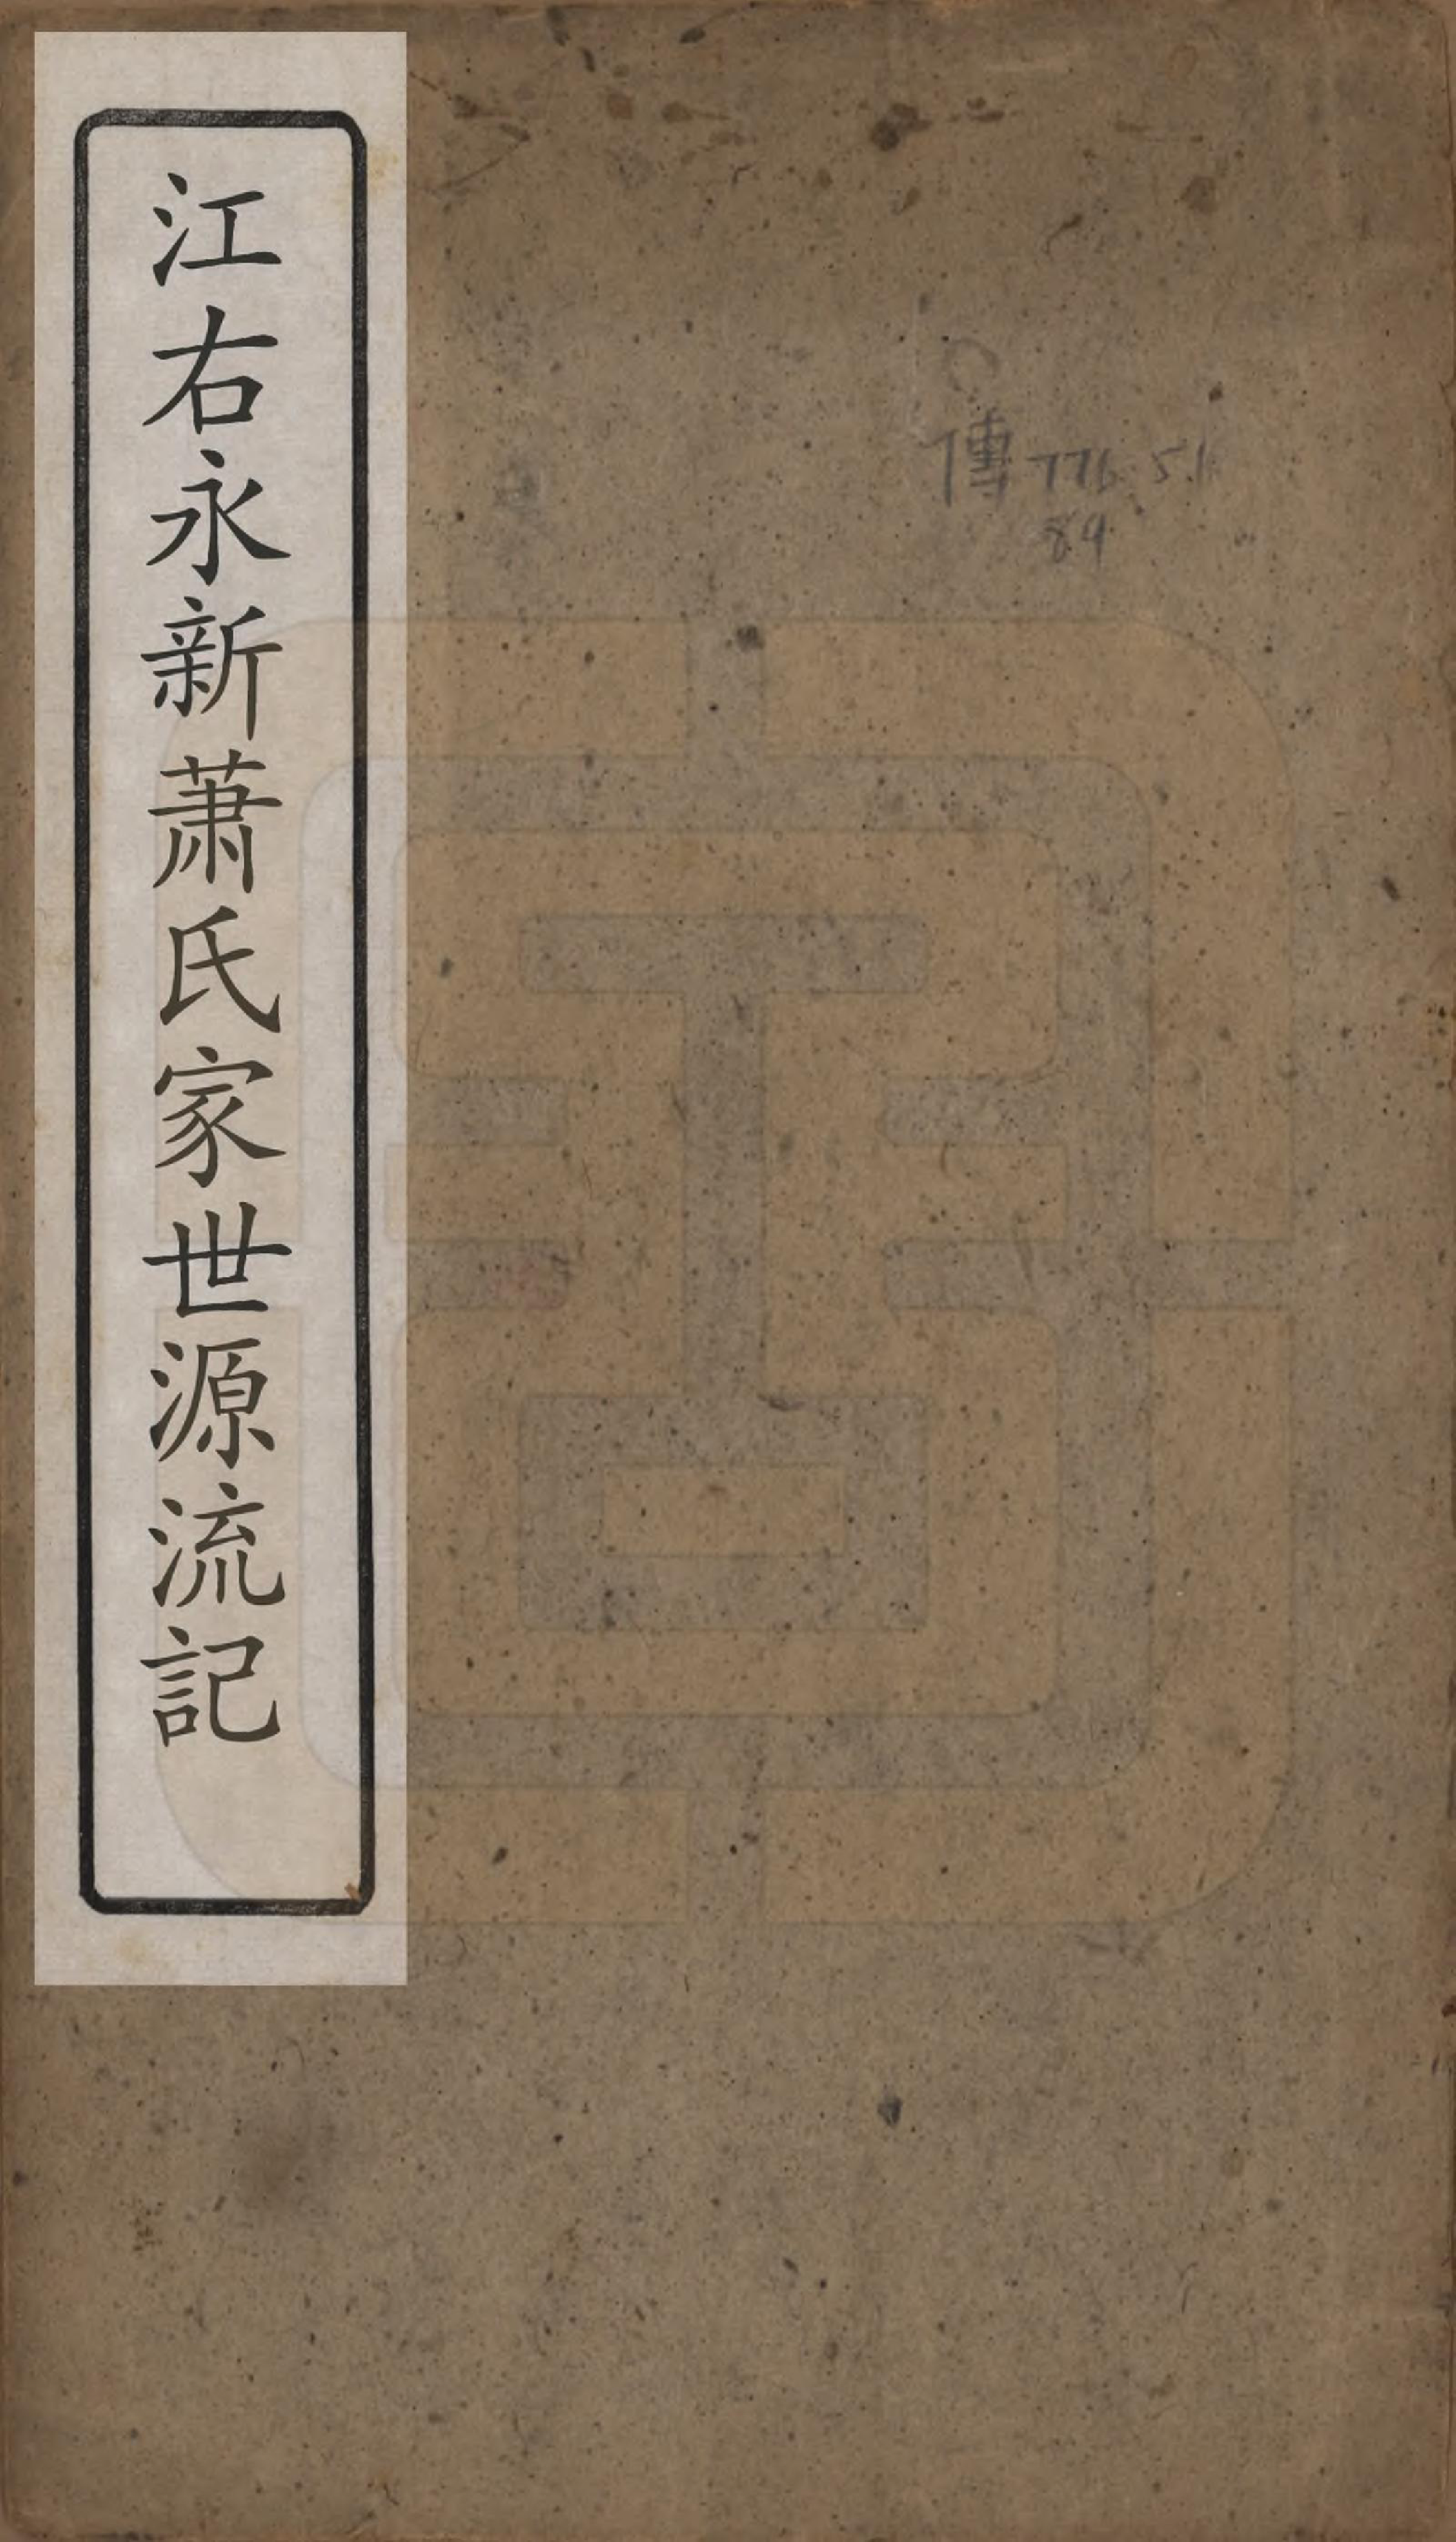 江右永新蕭氏家世源流記
傳 776.51
89